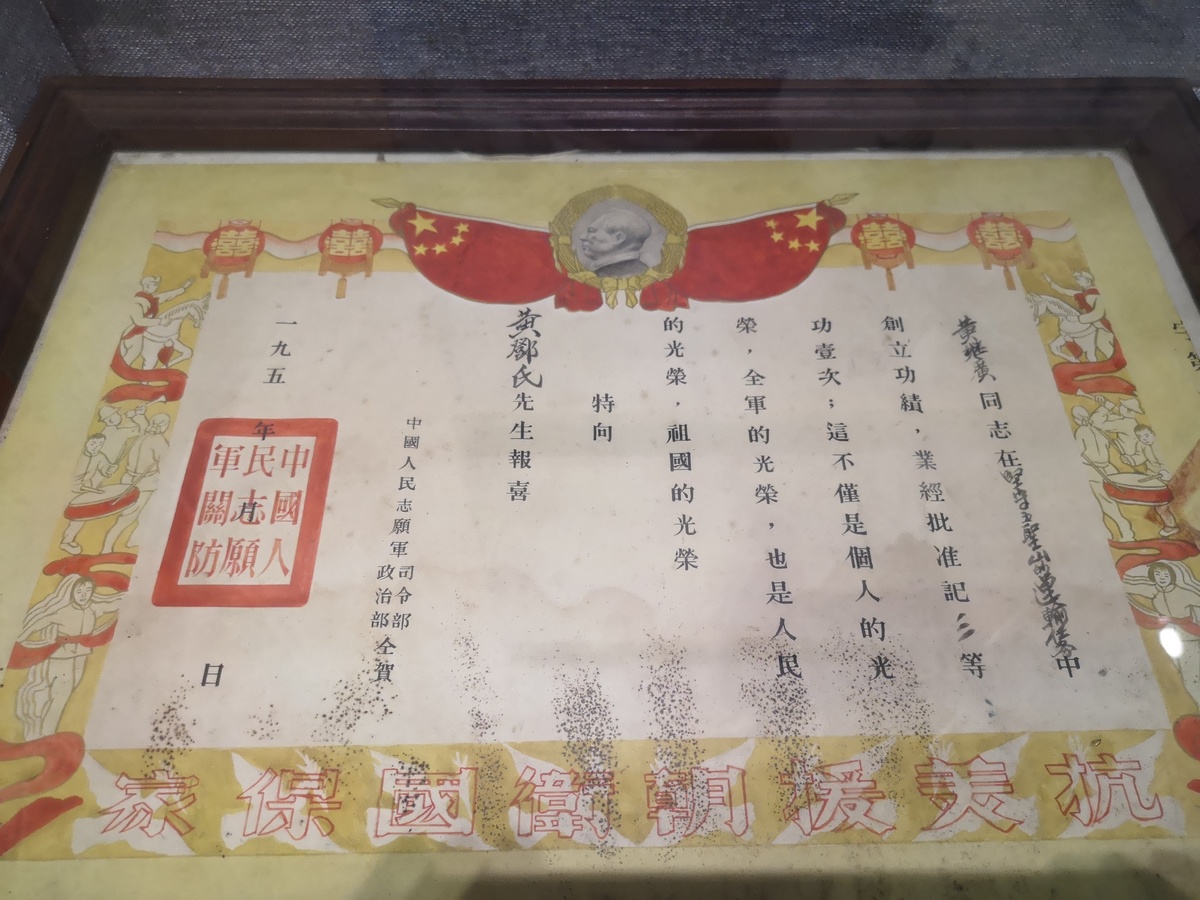 黄继廣同志在坚守五聖山的運輸中
創立功績，業經批准記三等
功壹次；這不僅是個人的光
榮，全軍的光榮，也是人民
的光榮，祖國的光榮
特向
黄鄧氏先生報喜
中國人民志願軍司令部
政治部仝賀
一九五年月日
中國人
民志願
軍關防
抗美援朝衛國保家
囍 囍 囍 囍